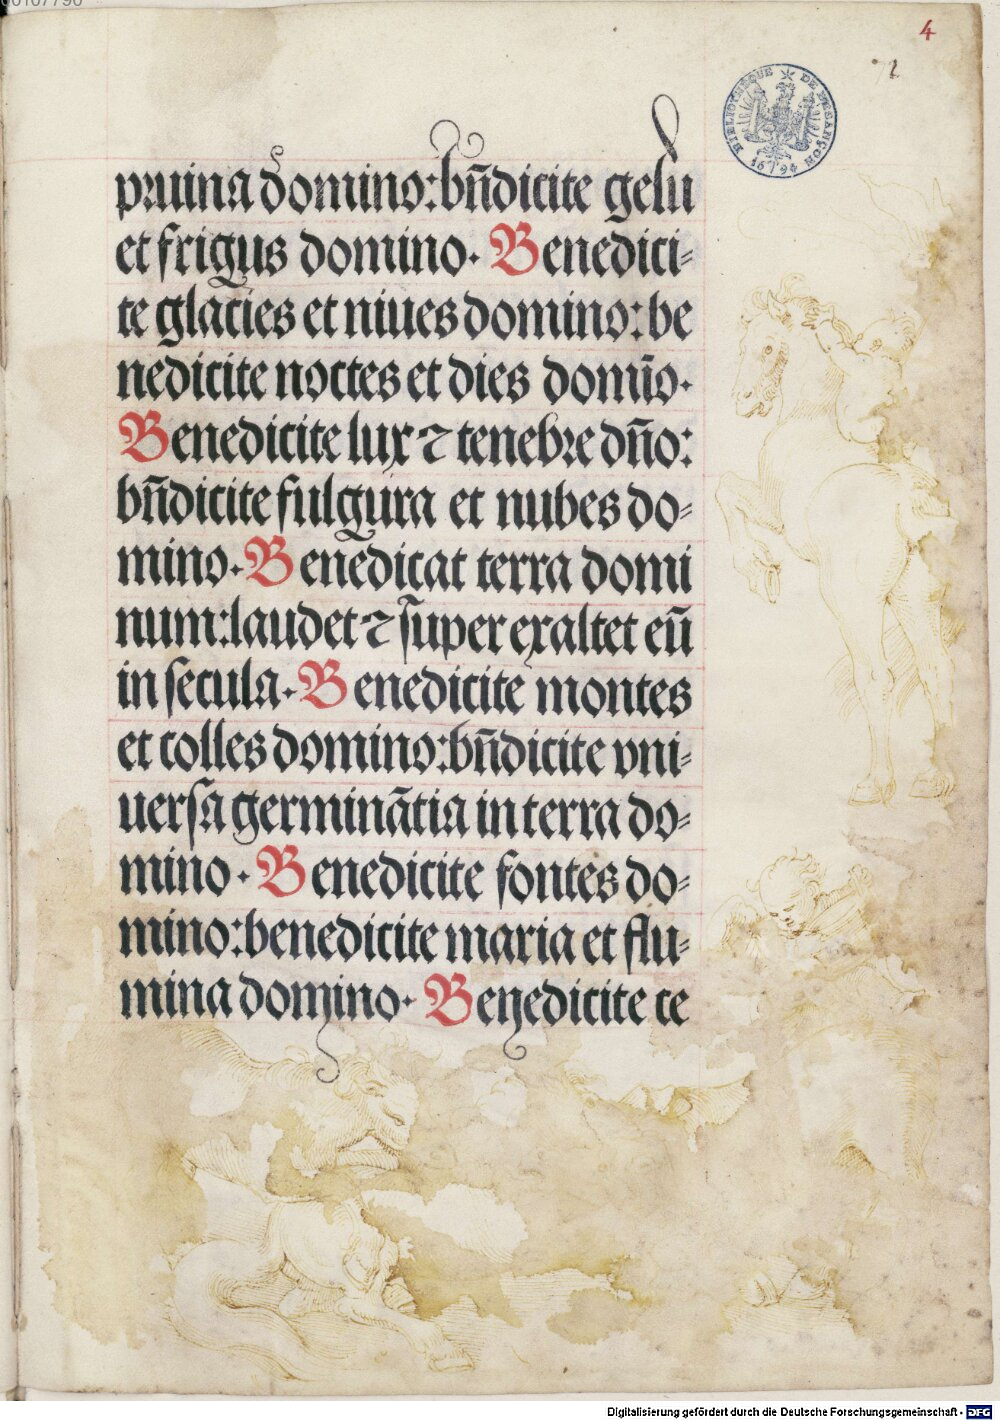 00107790
4
2
BIBLIOTHEQUE DE BESANÇON
1694
pruina domino: bñdicite gelu
et frigus domino. Benedici=
te glacies et niues domino: be
nedicite noctes et dies domĩo.
Benedicite lux ⁊ tenebre dño:
bñdicite fulgura et nubes do=
mino. Benedicat terra domi
num: laudet ⁊ super exaltet eũ
in secula. Benedicite montes
et colles domino: bñdicite vni=
uersa germinãtia in terra do=
mino. Benedicite fontes do=
mino: benedicite maria et flu=
mina domino. Benedicite ce
Digitalisierung gefördert durch die Deutsche Forschungsgemeinschaft - DFG